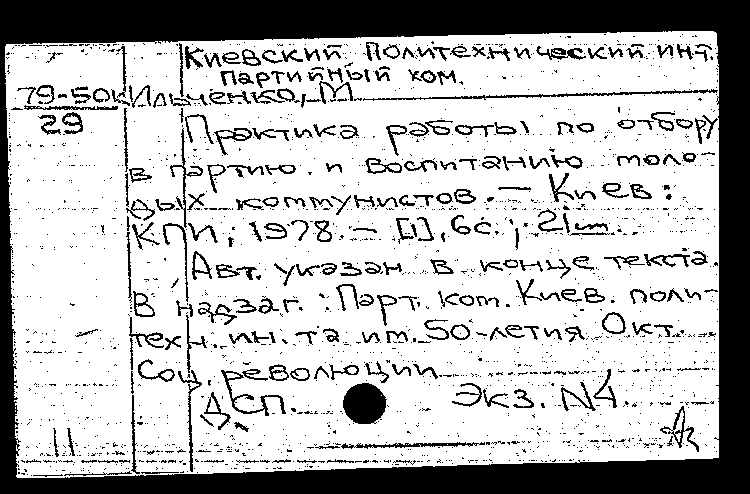 Киевский Политехнический инт.
партийный ком.
79-50к Ильченко, М
29
Практика работы по отбору
в партию и воспитанию моло-
дых коммунистов. — Киев:
КПИ, 1978. — [1], 6с.; 21 см.
Авт. указан в конце текста.
В надзаг.: Парт. ком. Киев. поли-
техн. ин.та им. 50-летия Окт.
Соц. революции
ДСП. Экз. N4.
11